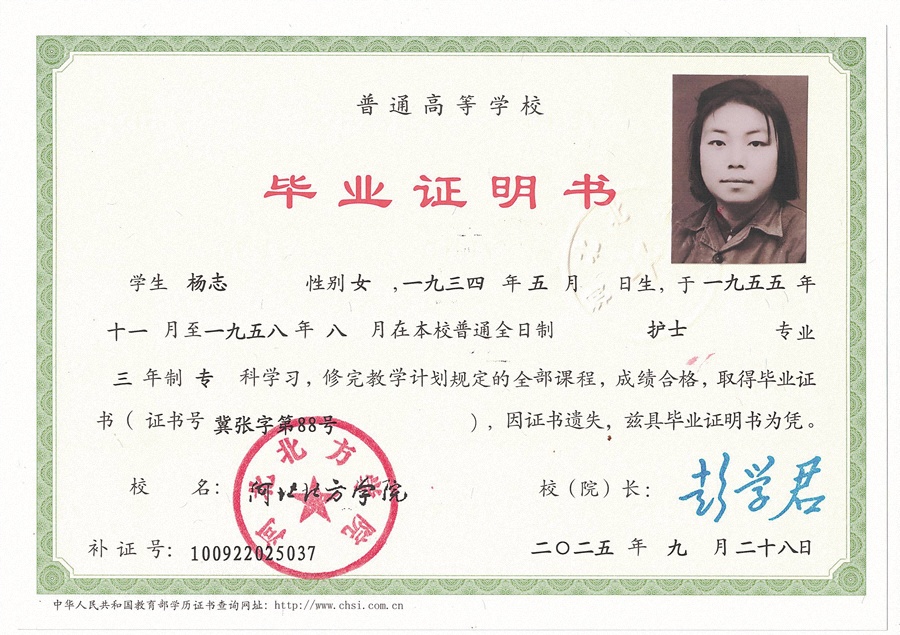 普通高等学校
毕业证明书
学生 杨志 性别 女 ,一九三四 年 五 月 日生，于 一九五五 年
十一 月至一九五八 年 八 月在本校普通全日制 护士 专业
三 年制 专 科学习，修完教学计划规定的全部课程，成绩合格，取得毕业证
书（ 证书号 冀张字第88号 ），因证书遗失，兹具毕业证明书为凭。
校 名：河北北方学院
河北北方学院
校（院）长：彭学君
补 证 号：100922025037
二〇二五 年 九 月 二十八日
中华人民共和国教育部学历证书查询网址：http://www.chsi.com.cn